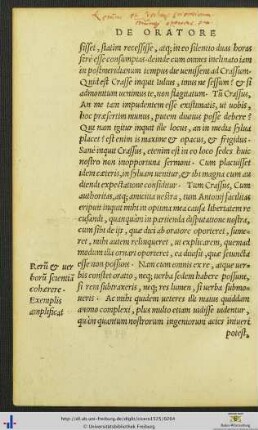 DE ORATORE
sisset, statim recessisse, atq; in eo silentio duas horas
ferè esse consumptas: deinde cum omnes inclinato iam
in postmeridianum tempus die uenissent ad Crassum:
Quid est Crasse inquit Iulus, imus ne sessum? & si
admonitum uenimus te, non flagitatum. Tũ Crassus,
An me tam impudentem esse existimatis, ut uobis,
hoc præsertim munus, putem diutius posse debere?
Qui nam igitur inquit ille locus, an in media sylua
placet? est enim is maxime & opacus, & frigidus.
Sanè inquit Crassus, etenim est in eo loco sedes huic
nostro non inopportuna sermoni. Cum placuisset
idem cæteris, in syluam uenitur, & ibi magna cum au
diendi expectatione considitur. Tum Crassus, Cum
authoritas, atq; amicitia uestra, tum Antonij facilitas
eripuit inquit mihi in optima mea causa libertatem re
cusandi, quanquam in partienda disputatione nostra,
cum sibi de ijs, quæ dici ab oratore oporteret, sume
ret, mihi autem relinqueret, ut explicarem, quemad
modum illa ornari oporteret, ea diuisit, quæ seiuncta
esse non possunt. Nam cum omnis ex re, atque uer
bis constet oratio, neq; uerba sedem habere possunt,
si rem subtraxeris, neq; res lumen, si uerba submo
ueris. Ac mihi quidem ueteres illi maius quiddam
animo complexi, plus multo etiam uidisse uidentur,
quàm quantum nostrorum ingeniorum acies intueri
potest,
Rerũ & uer
borũ scientiã
cohærere.
Exemplis
amplificat
© Universitätsbibliothek Freiburg